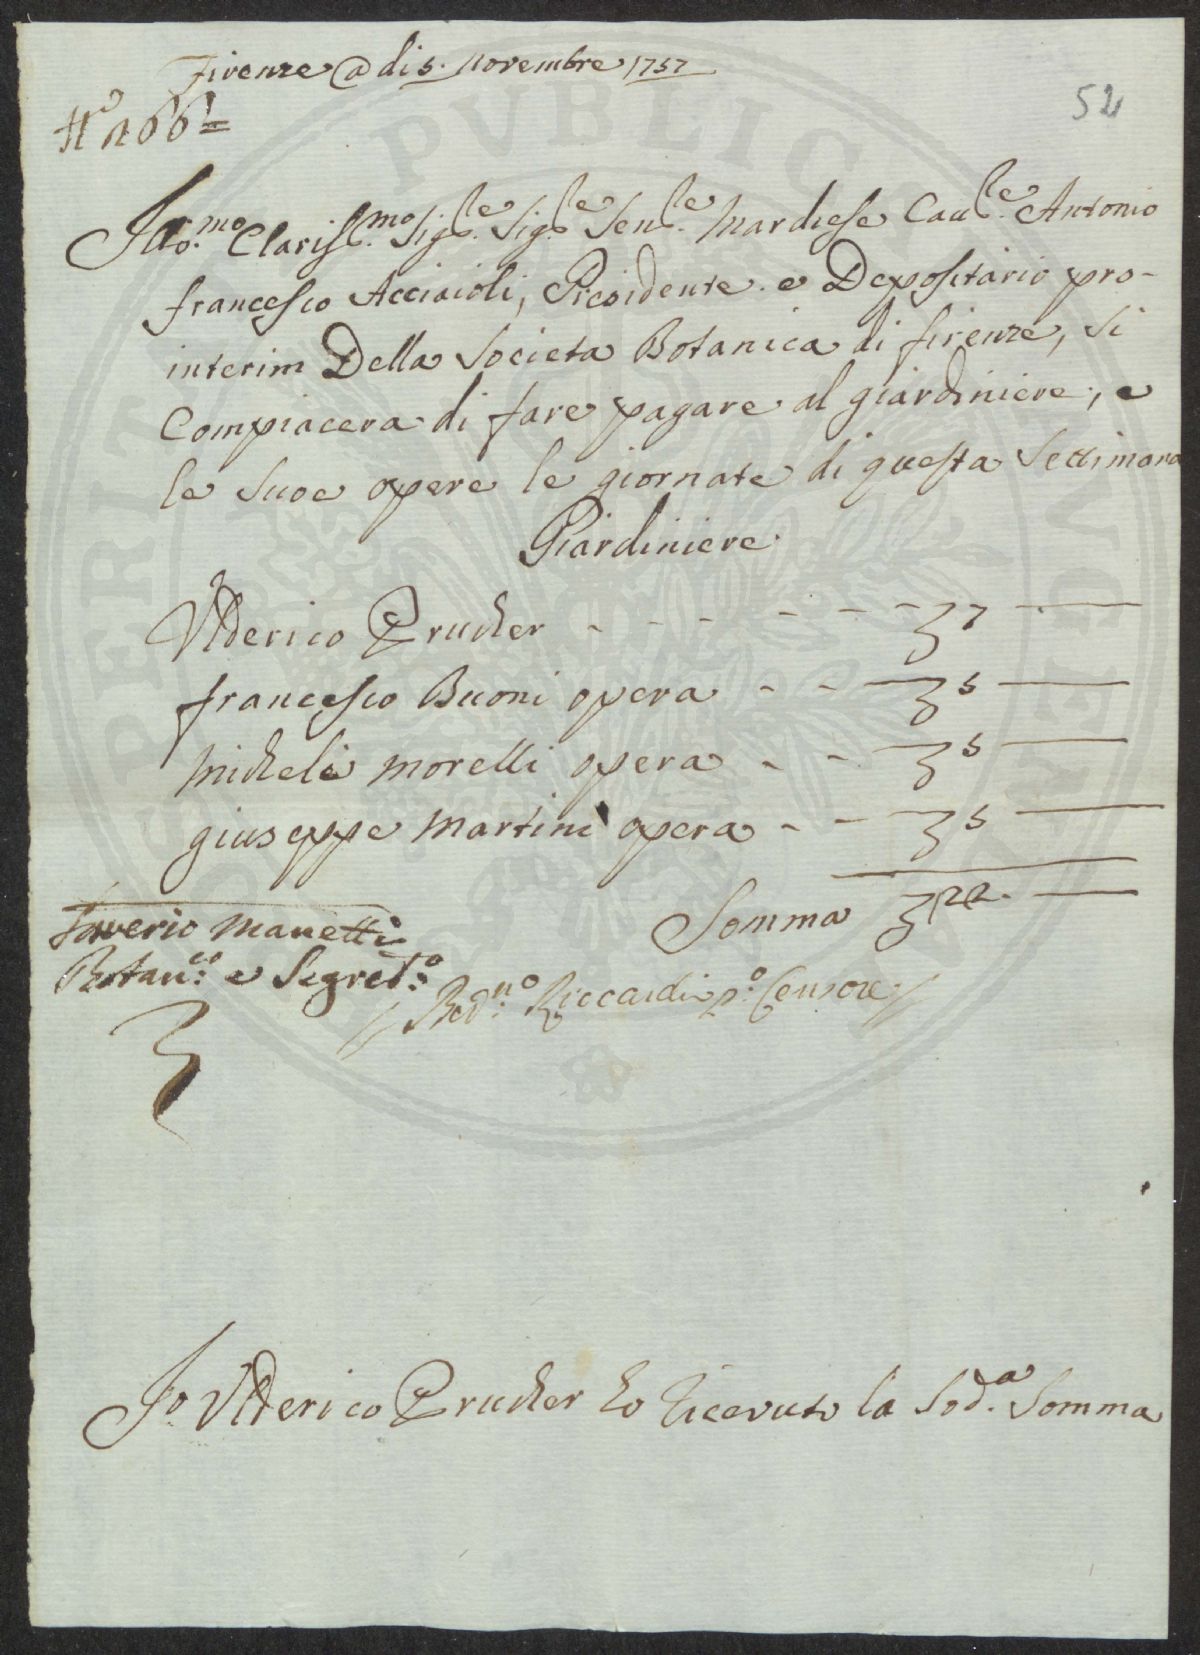 Firenze @ di 5. Novembre 1757
52
N.o 166=
Illo.mo Clariss.mo Sig.le Sig.le Sen.le Marchese Cau.le Antonio
francesco Acciaioli, Presidente e Depositario pro-
interim Della Societa Botanica di firenze, si
Compiacera di fare pagare al giardiniere, e
le Suoe opere le giornate di questa Settimana
Giardiniere
Ulderico Prucher - - - - - - 7 —
francesco Buoni opera - - - 5 —
Michele Morelli opera - - - 5 —
giuseppe Martini opera - - - 5 —
Somma 22. —
Saverio Manetti
Botan.co e Segret.o
Bed.no Riccardi p.o Censore
Io Ulderico Prucher ho riceuuto la Sod.a Somma